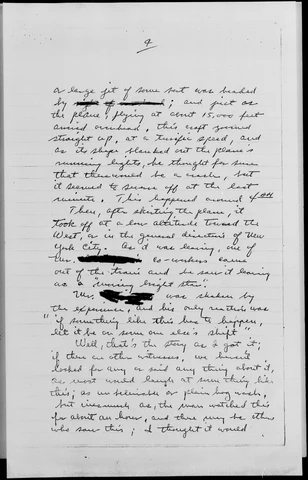 4
or large jet of some sort was backed
by ; and just as
the plane, flying at about 15,000 feet
arrived overhead, this craft zoomed
straight up, at a terrific speed, and
as its shape blanked out the plane's
running lights, he thought for sure
that there would be a crash, but
it seemed to swerve off at the last
minute. This happened around
Then, after skirting the plane, it
took off at a low altitude toward the
West, or in the general direction of New
York City. As it was leaving, one of
Mr. co-workers came
out of the train and he saw it leaving
as a "moving bright star".
Mr. was shaken by
the experience, and his only reaction was
"if something like this has to happen,
let it be on some one else's shift"
Well, that's the story as I got it;
if there are other witnesses, we haven't
looked for any or said any thing about it,
as most would laugh at some thing like
this; as unbelievable or plain hog wash,
but inasmuch as, the man watched this
for about an hour, and there may be others
who saw this; I thought it would